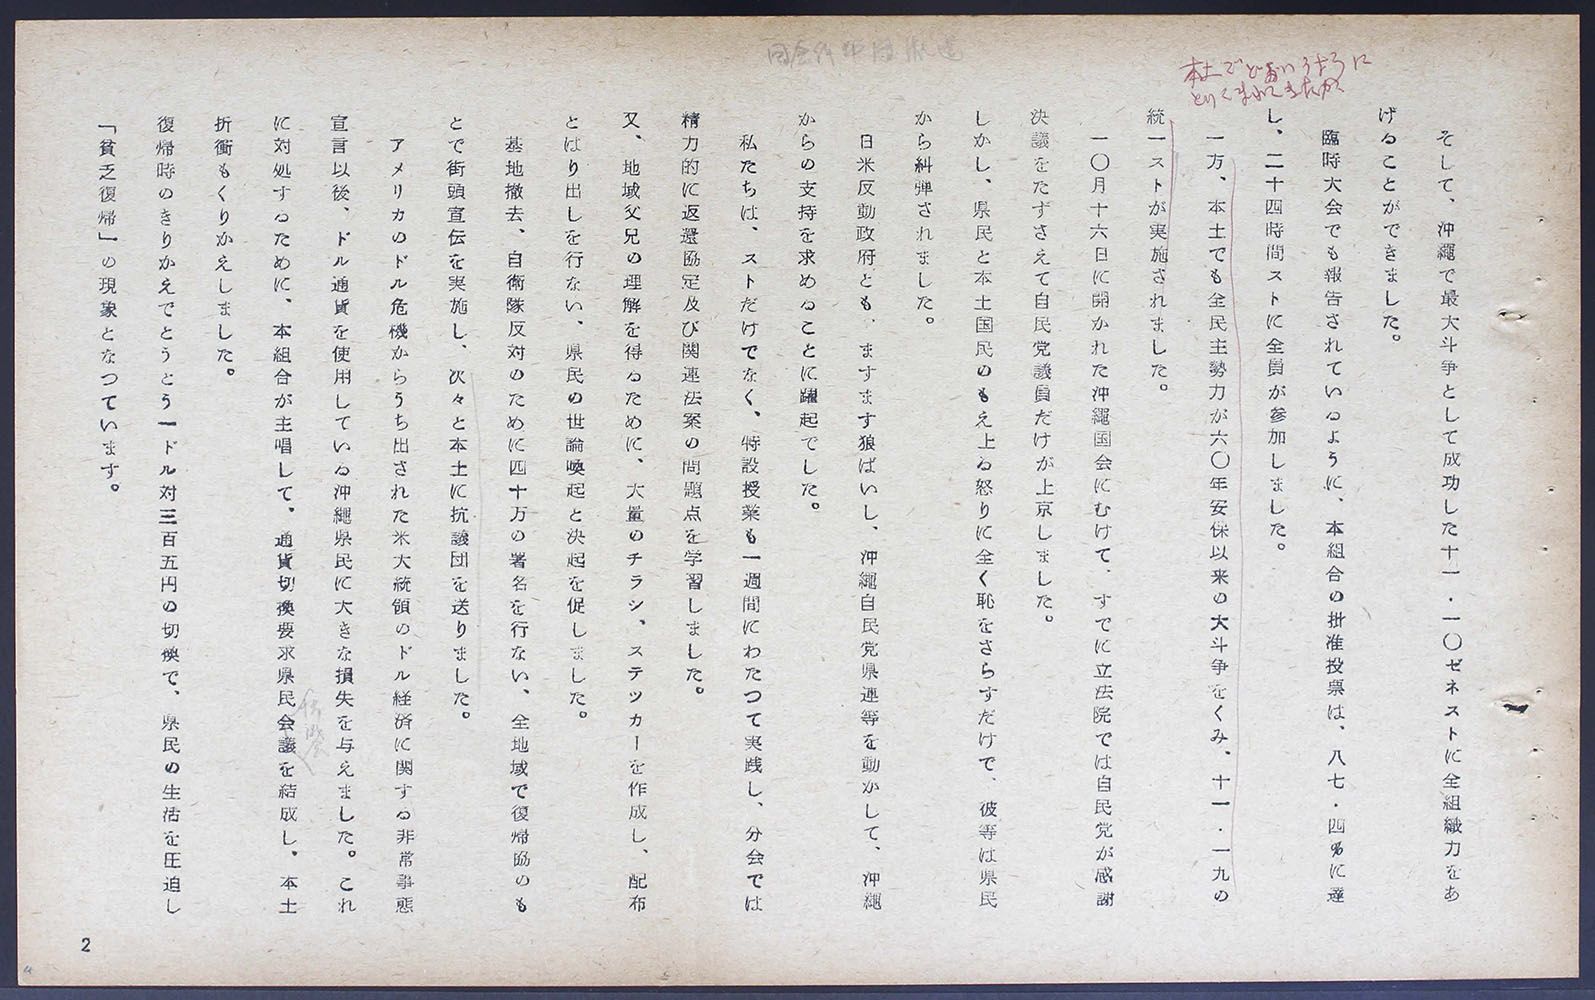 本土でどういうように
とりくまれてきたか
そして、沖縄で最大斗争として成功した十一・一〇ゼネストに全組織力をあ
げることができました。
臨時大会でも報告されているように、本組合の批准投票は、八七・四%に達
し、二十四時間ストに全員が参加しました。
一方、本土でも全民主勢力が六〇年安保以来の大斗争をくみ、十一・一九の
統一ストが実施されました。
一〇月十六日に開かれた沖縄国会にむけて、すでに立法院では自民党が感謝
決議をたずさえて自民党議員だけが上京しました。
しかし、県民と本土国民のもえ上る怒りに全く恥をさらすだけで、彼等は県民
から糾弾されました。
日米反動政府とも、ますます狼ばいし、沖縄自民党県連等を動かして、沖縄
からの支持を求めることに躍起でした。
私たちは、ストだけでなく、特設授業も一週間にわたつて実践し、分会では
精力的に返還協定及び関連法案の問題点を学習しました。
又、地域父兄の理解を得るために、大量のチラシ、ステツカーを作成し、配布
とはり出しを行ない、県民の世論喚起と決起を促しました。
基地撤去、自衛隊反対のために四十万の署名を行ない、全地域で復帰協のも
とで街頭宣伝を実施し、次々と本土に抗議団を送りました。
アメリカのドル危機からうち出された米大統領のドル経済に関する非常事態
宣言以後、ドル通貨を使用している沖縄県民に大きな損失を与えました。これ
に対処するために、本組合が主唱して、通貨切換要求県民会議を結成し、本土
折衝もくりかえしました。
復帰時のきりかえでとうとう一ドル対三百五円の切換で、県民の生活を圧迫し
「貧乏復帰」の現象となつています。
2